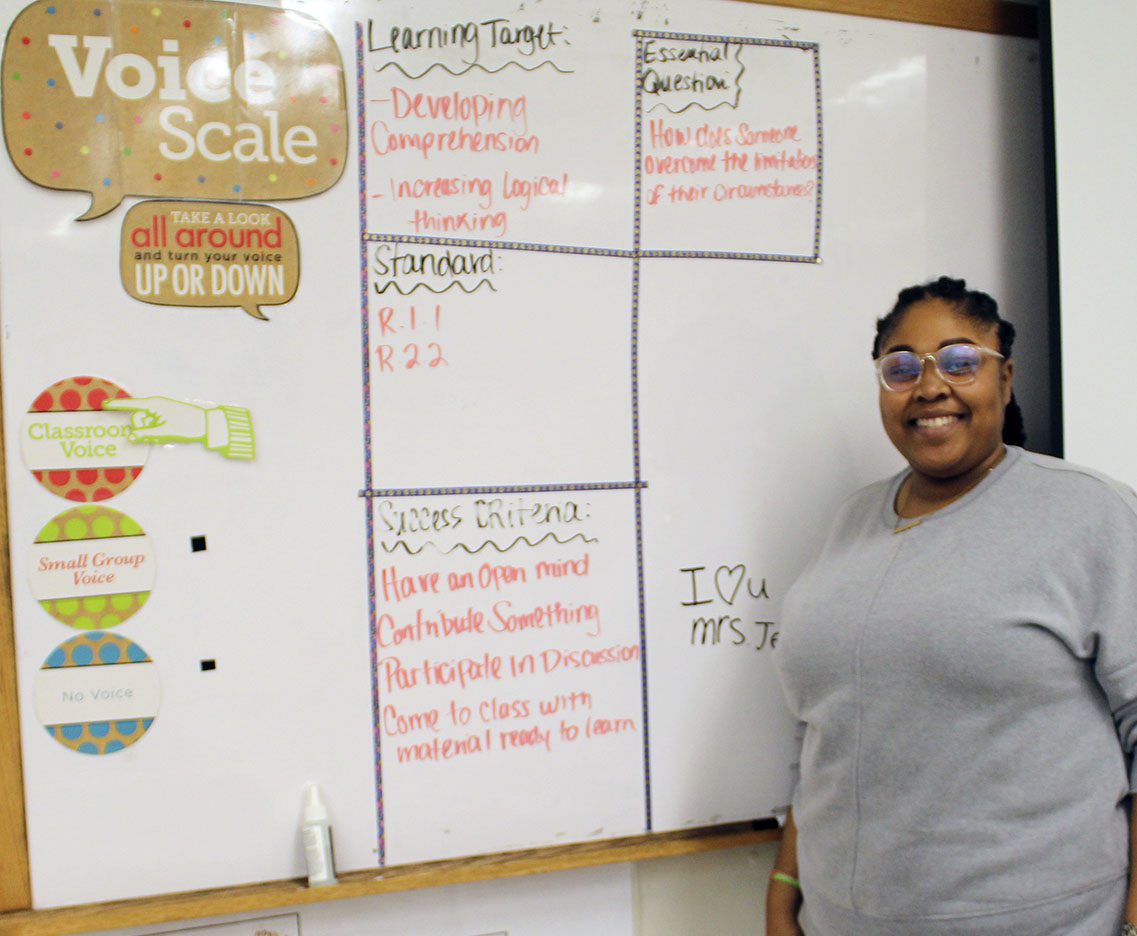 Voice
Scale
TAKE A LOOK
all around
and turn your voice
UP OR DOWN
Classroom
Voice
Small Group
Voice
No Voice
Learning Target:
- Developing
Comprehension
- Increasing Logical
thinking
Essential
Question
How does Someone
overcome the limitations
of their Circumstances?
Standard:
R.1.1
R.2.2
Success CRiteria:
Have an Open mind
Contribute Something
Participate In Discussion
Come to Class with
material ready to learn
I ♡ u
mrs. Je